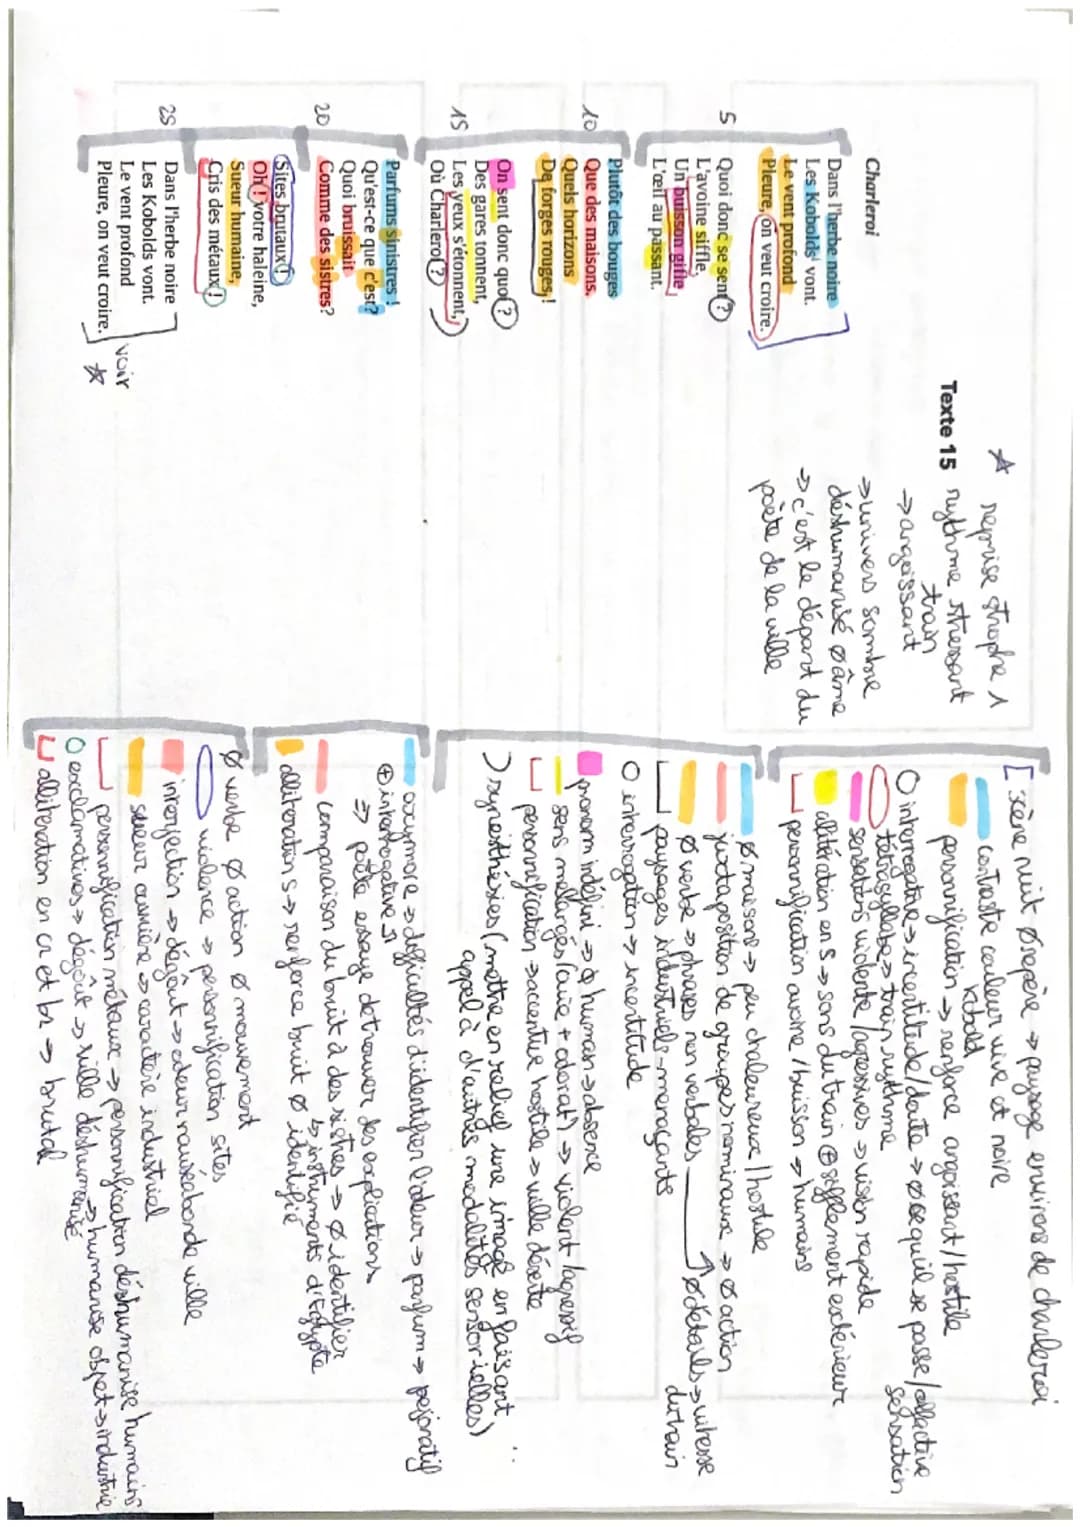 ★ reprise strophe 1
Texte 15 rythme stressant
train
→ angoissant
→ univers sombre
déshumanisé ø âme
→ c'est le départ du
poète de la ville
Charleroi
Dans l'herbe noire
Les Kobolds vont.
Le vent profond
Pleure, on veut croire.
5
Quoi donc se sent ?
L'avoine siffle.
Un buisson gifle
L'œil au passant.
Plutôt des bouges
10 Que des maisons.
Quels horizons
De forges rouges !
On sent donc quoi ?
Des gares tonnent,
15 Les yeux s'étonnent,
Où Charleroi ?
Parfums sinistres !
Qu'est-ce que c'est ?
Quoi bruissait
20 Comme des sistres ?
Sites brutaux !
Oh ! votre haleine,
Sueur humaine,
Cris des métaux !
25 Dans l'herbe noire
Les Kobolds vont.
Le vent profond
Pleure, on veut croire.
voir
★
[ scène nuit ø repère → paysage environs de charleroi
contraste couleur vive et noire
kobold
personnification → renforce angoissant / hostile
O interrogative → incertitude / doute → ø ce qu'il se passe / olfactive
sensation
tétrasyllabe → train rythme
sensations violente / agressives → vision rapide
alitération en s → sons du train ⊕ sifflement extérieur
personnification avoine / buisson → humains
ø maisons → peu chaleureux / hostile
juxtaposition de groupes nominaux → ø action
ø verbe → phrases non verbales → ø détails → vitesse
du train
paysages industriels - menaçants
O interrogation → incertitude
pronom indéfini → ø humain → absence
sens mélangés (ouïe + odorat) → violent / agressif
personnification → accentue hostile → ville déserte
) synesthésies (mettre en relief une image en faisant
appel à d'autres modalités sensorielles)
oxymore → difficultés d'identifier l'odeur → parfum → péjoratif
⊕ interrogative
⇒ poète essaye de trouver des explications
comparaison du bruit à des sistres → ø identifier
↳ instruments d'Egypte
alliteration s → renforce bruit ø identifié
ø verbe ø action ø mouvement
violence → personnification sites
interjection → dégout → odeur nauséabonde ville
sueur ouvrière → caractère industriel
personnification métaux → personnification déshumanise humains
→ humanise objet → industrie
O exclamatives → dégoût → ville déshumanisé
alliteration en cr et br → brutal